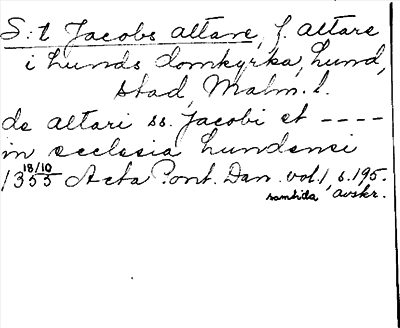 S:t Jacobs altare, f. altare
i Lunds domkyrka, Lund,
stad, Malm. l.
de altari ss. Jacobi et ----
in ecclesia Lundensi
18/10
1355 Acta Pont. Dan. vol. 1, s. 195.
samtida avskr.